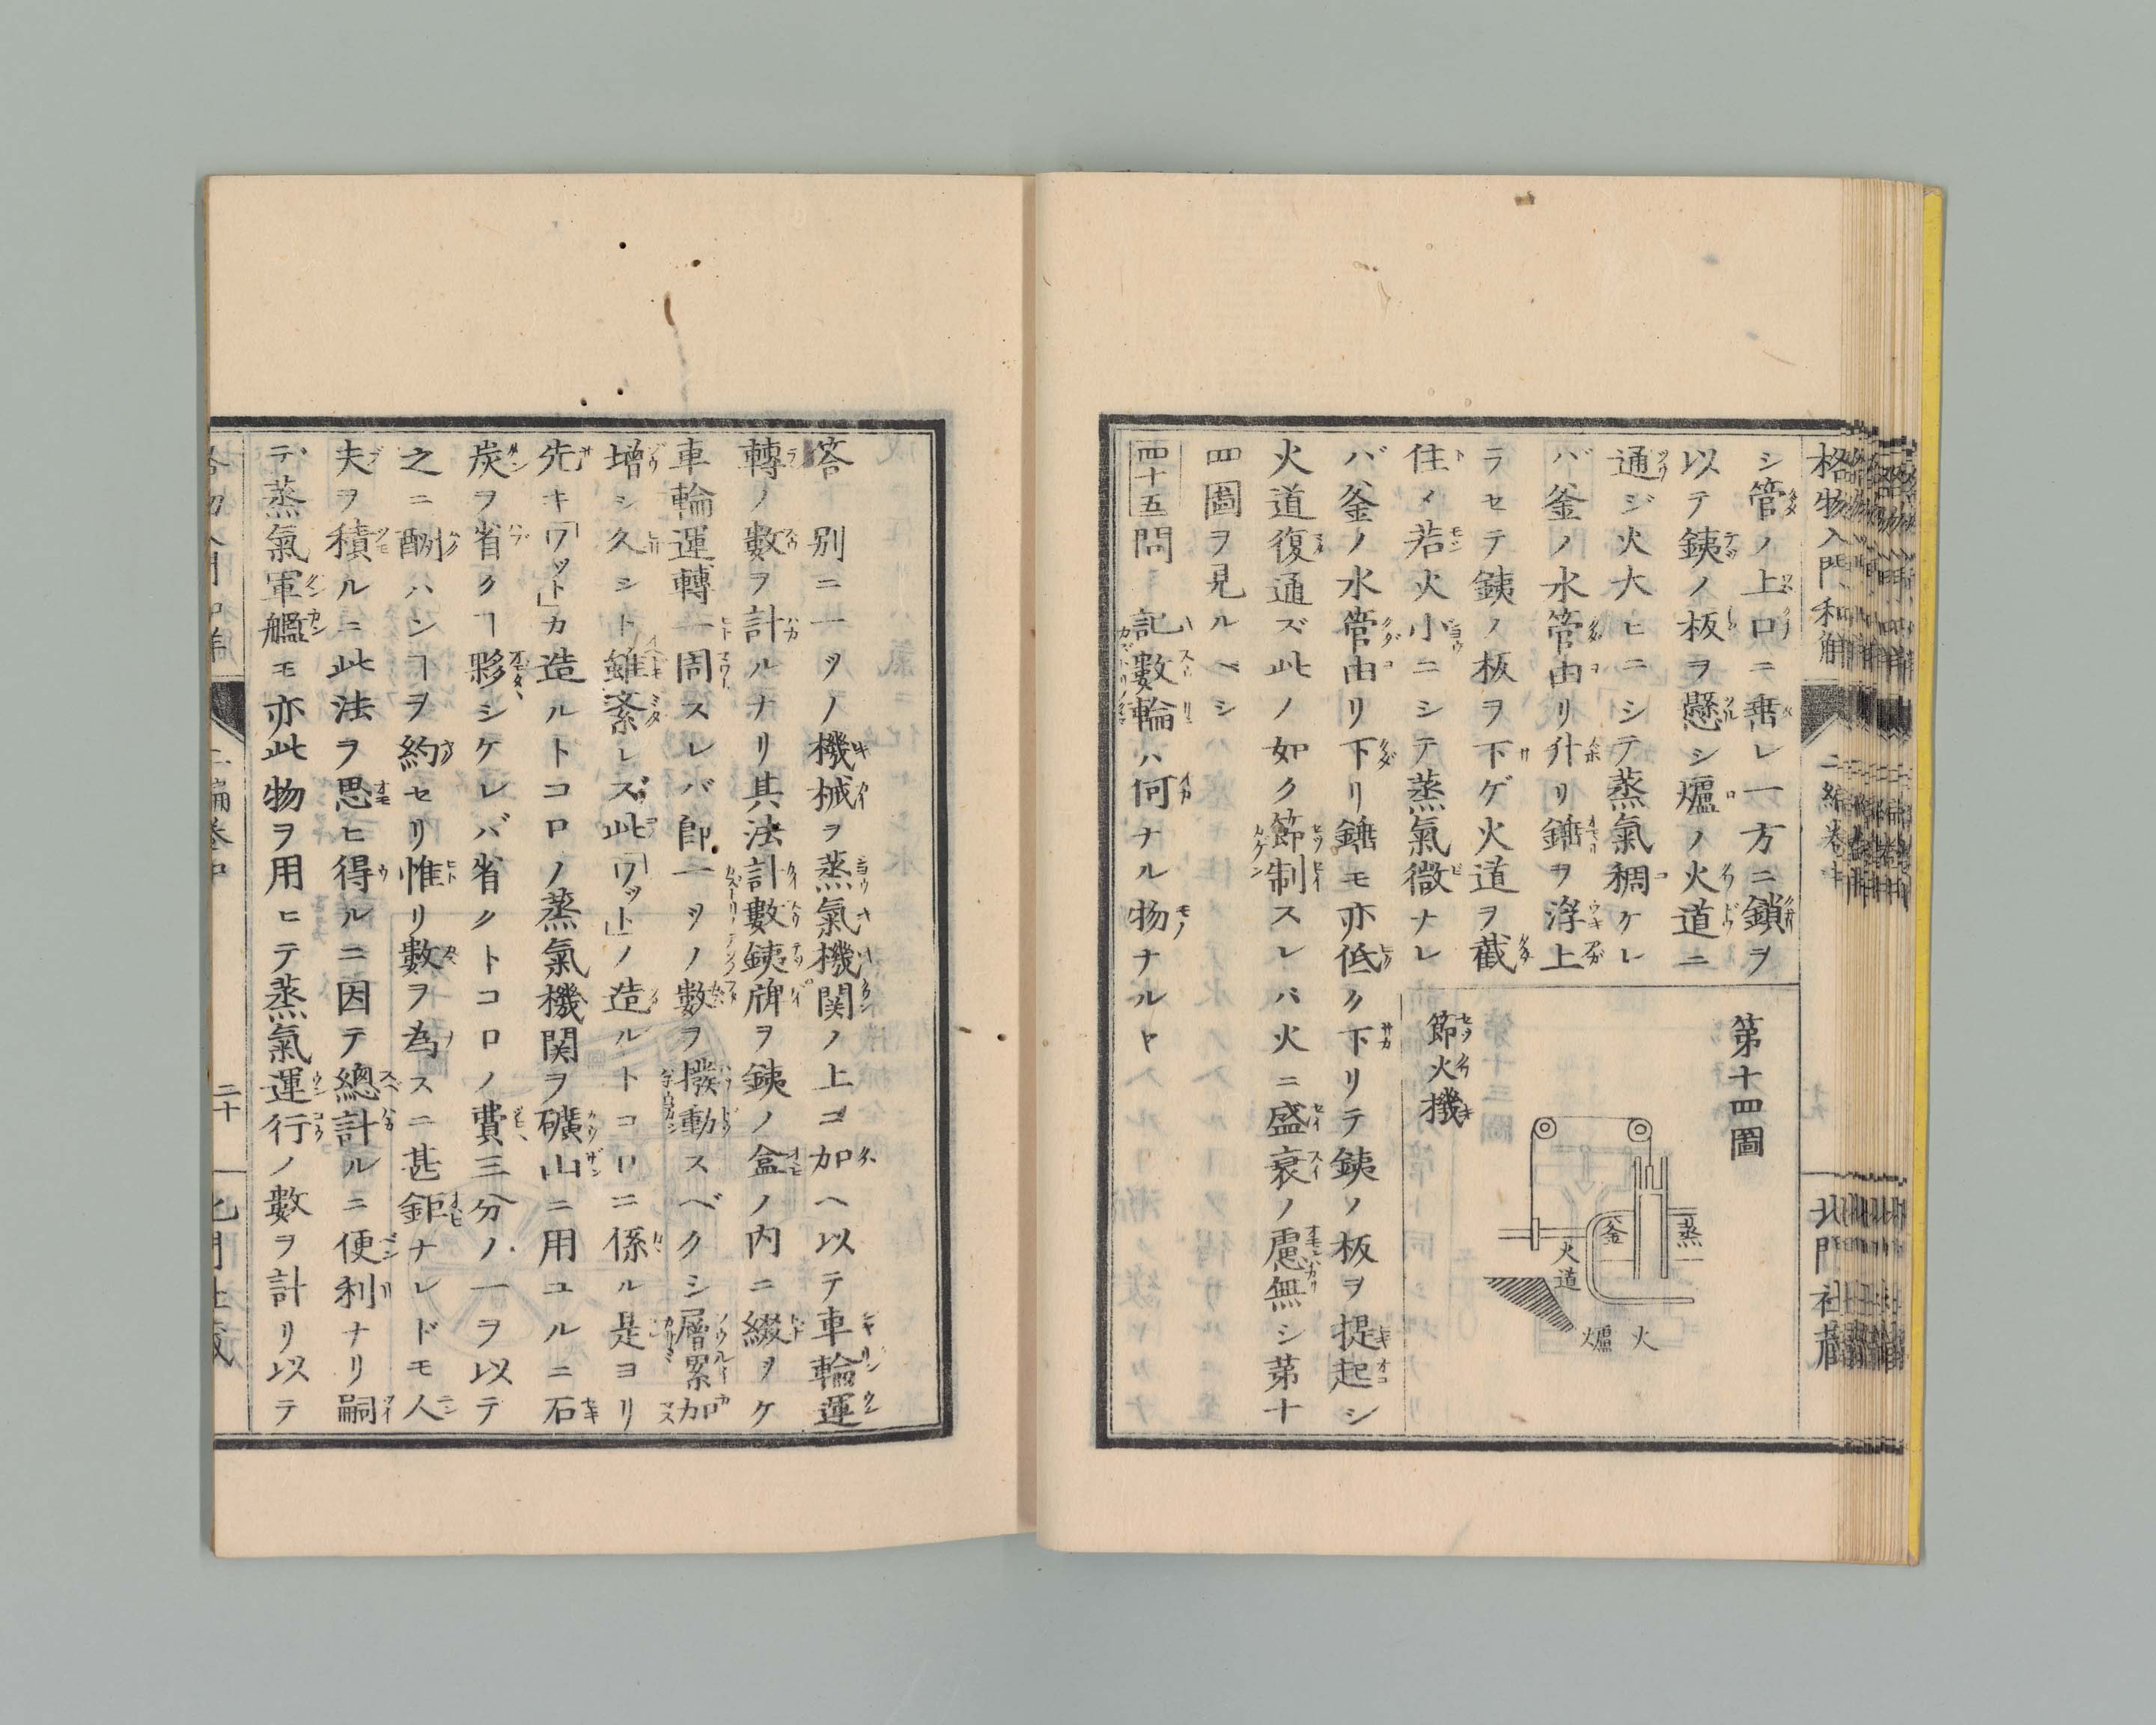 格物入門和解 二編卷中 北門社藏
シ管ノ上口ニ垂レ一方ニ鎖ヲ
以テ鉄ノ板ヲ懸シ爐ノ火道ニ
通ジ火大ヒニシテ蒸氣稠ケレ
バ釜ノ水管由リ升リ錘ヲ浮上
ラセテ鉄ノ板ヲ下ゲ火道ヲ截
住メ若火小ニシテ蒸氣微ナレ
第十四圖
蒸
釜
火道
火爐
節火機
バ釜ノ水管由リ下リ錘モ亦低ク下リテ鉄ノ板ヲ提起シ
火道復通ズ此ノ如ク節制スレバ火ニ盛衰ノ慮無シ第十
四圖ヲ見ルベシ
四十五問 記數輪ハ何ナル物ナルヤ
答 別ニ一ツノ機械ヲ蒸氣機関ノ上ニ加ヘ以テ車輪運
轉ノ數ヲ計ルナリ其法計數鉄牌ヲ鉄ノ盒ノ内ニ綴ヲケ
車輪運轉一周スレバ即一ツノ數ヲ撥動スベクシ層累加
増シ久シト雖紊レズ此「ワット」ノ造ルトコロニ係ル是ヨリ
先キ「ワット」カ造ルトコロノ蒸氣機関ヲ礦山ニ用ユルニ石
炭ヲ省クヿ夥シケレバ省クトコロノ費三分ノ一ヲ以テ
之ニ酬ハンヿヲ約セリ惟リ數ヲ為スニ甚鉅ナレドモ人
夫ヲ積ルニ此法ヲ思ヒ得ルニ因テ總計ルニ便利ナリ嗣
テ蒸氣軍艦モ亦此物ヲ用ヒテ蒸氣運行ノ數ヲ計リ以テ
二編卷中 二十 北門社藏